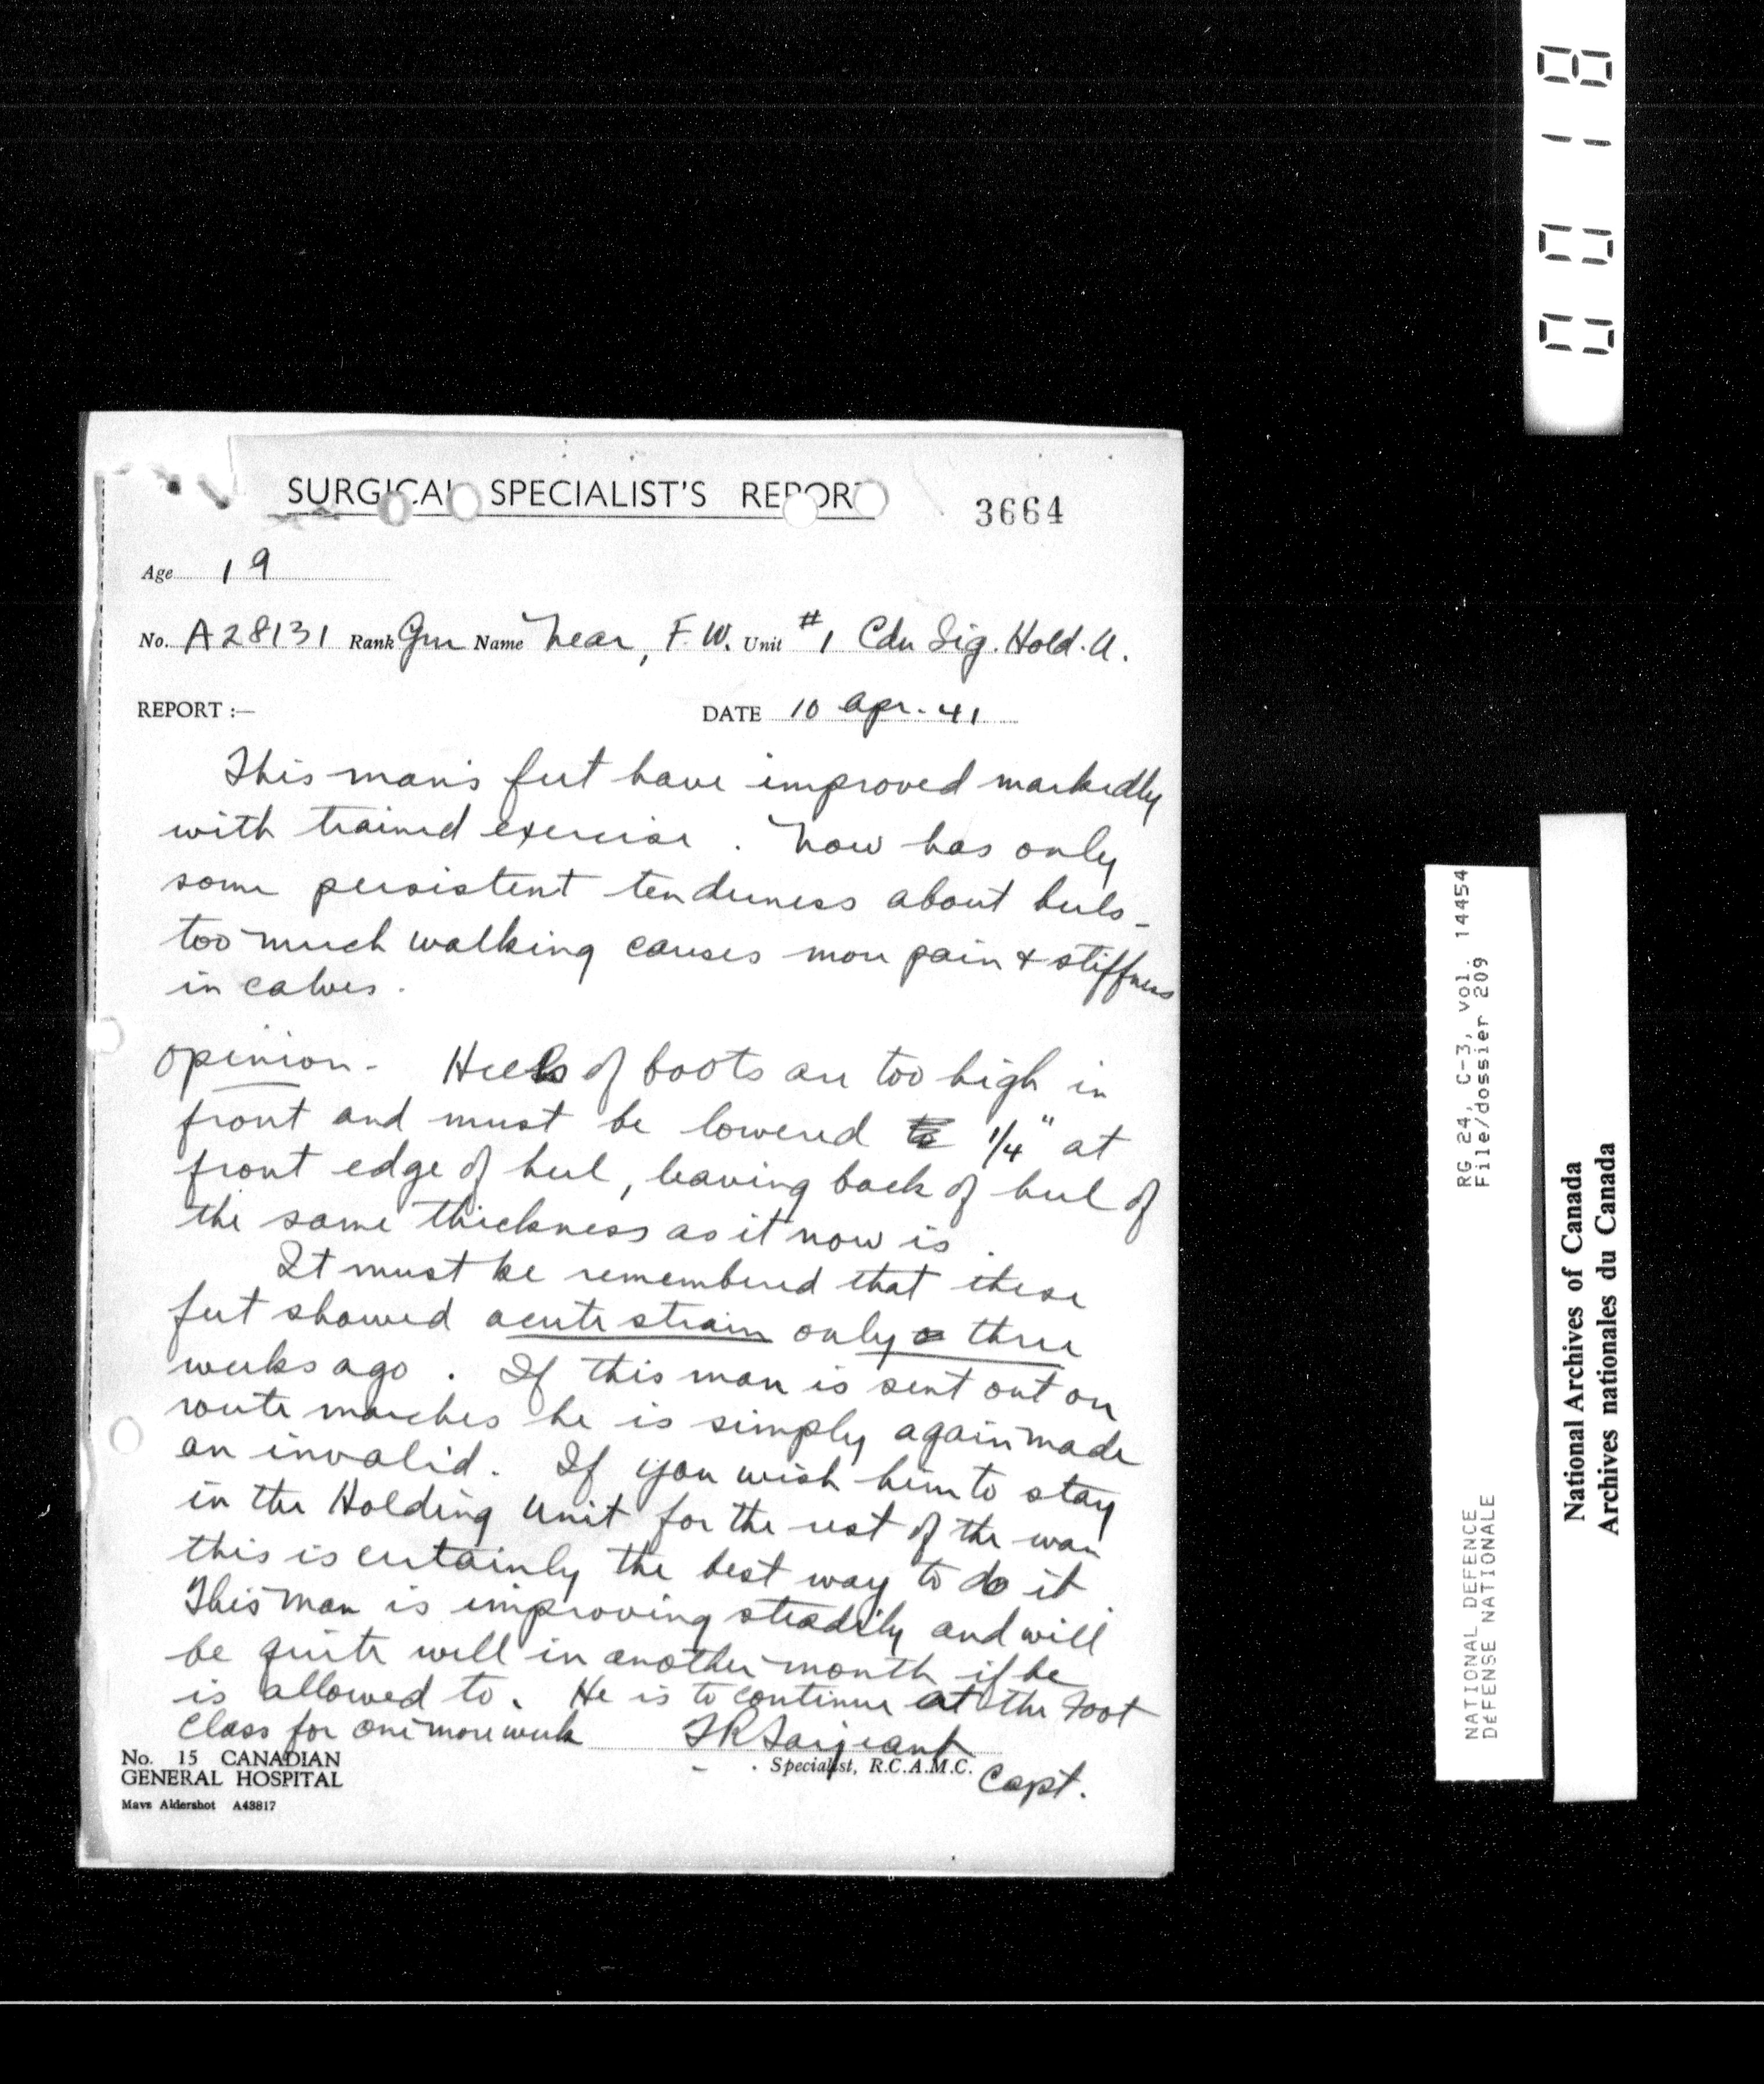 SURGICAL SPECIALIST'S REPORT
3664
Age 19
No. A28131 Rank Gnr Name Near, F. W. Unit #1 Cdn Sig. Hold. U.
REPORT :— DATE 10 Apr. 41
This man's feet have improved markedly
with trained exercise. Now has only
some persistent tenderness about heels -
too much walking causes more pain & stiffness
in calves.
Opinion - Heels of boots are too high in
front and must be lowered to 1/4" at
front edge of heel, leaving back of heel of
the same thickness as it now is.
It must be remembered that these
feet showed acute strain only a three
weeks ago. If this man is sent out on
route marches he is simply again made
an invalid. If you wish him to stay
in the Holding Unit for the rest of the war
this is certainly the best way to do it.
This man is improving steadily and will
be quite well in another month if he
is allowed to. He is to continue at the Foot
Class for one more week
Sarjeant
Specialist, R.C.A.M.C.
Capt.
No. 15 CANADIAN
GENERAL HOSPITAL
Mavs Aldershot A43817
00 18
RG 24, C-3, vol. 14454
File/dossier 209
NATIONAL DEFENCE
DÉFENSE NATIONALE
National Archives of Canada
Archives nationales du Canada